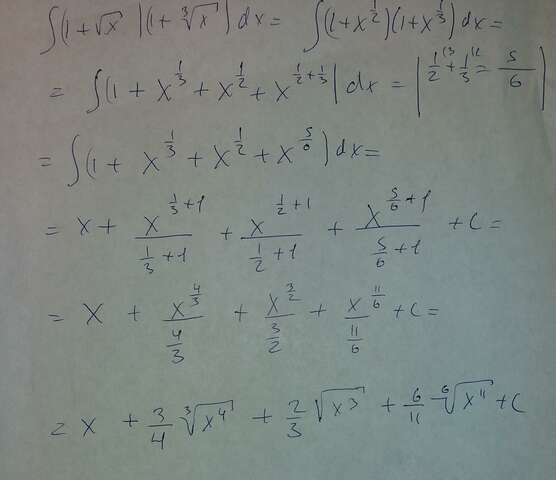 ∫(1+√x)(1+∛x)dx = ∫(1+x^{1/2})(1+x^{1/3})dx =
= ∫(1+x^{1/3}+x^{1/2}+x^{1/2+1/3})dx = |1/2^{(3}+1/3^{(2}=5/6|
= ∫(1+x^{1/3}+x^{1/2}+x^{5/6})dx =
= x + x^{1/3+1}/(1/3+1) + x^{1/2+1}/(1/2+1) + x^{5/6+1}/(5/6+1) + C =
= x + x^{4/3}/(4/3) + x^{3/2}/(3/2) + x^{11/6}/(11/6) + C =
= x + 3/4 ∛(x^4) + 2/3 √(x^3) + 6/11 ⁶√(x^11) + C